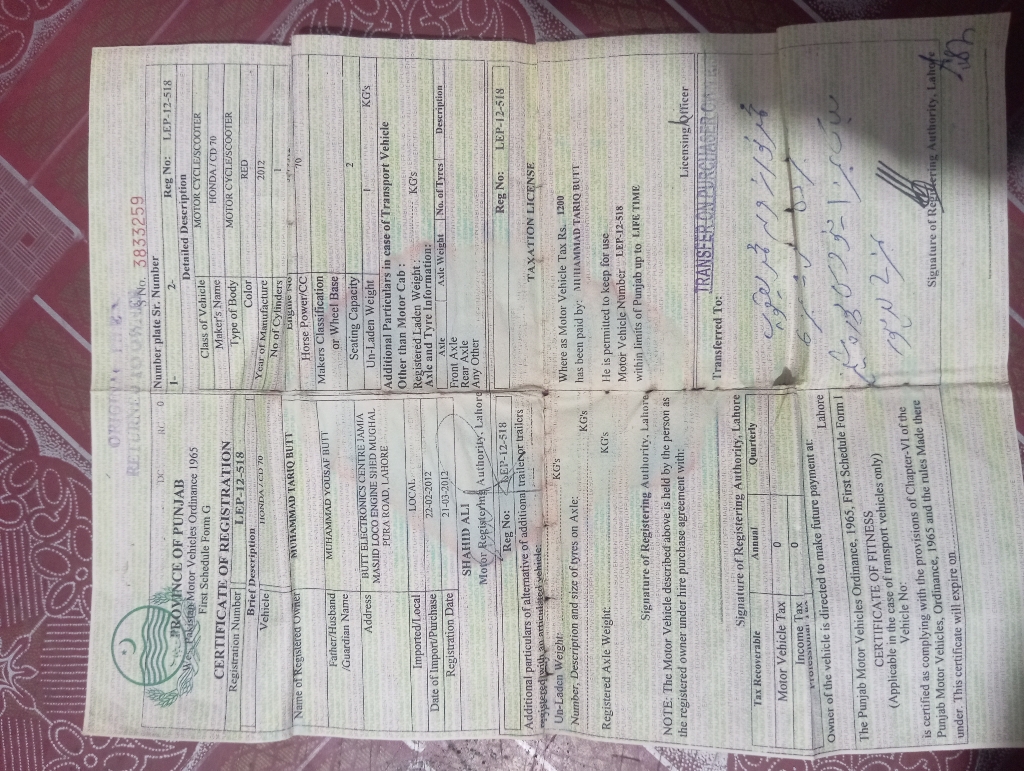 PROVINCE OF PUNJAB
Pakistan Motor Vehicles Ordinance 1965
First Schedule Form G
CERTIFICATE OF REGISTRATION
Registration Number LEP-12-518
Brief Description
Vehicle HONDA / CD 70
Name of Registered Owner MUHAMMAD TARIQ BUTT
Father/Husband MUHAMMAD YOUSAF BUTT
/Guardian Name
Address BUTT ELECTRONICS CENTRE JAMIA
MASJID LOCO ENGINE SHED MUGHAL
PURA ROAD, LAHORE
Imported/Local LOCAL
Date of Import/Purchase 22-02-2012
Registration Date 21-03-2012
SHAHID ALI
Motor Registering Authority, Lahore
Reg No: LEP-12-518
Additional particulars of alternative of additional trailer or trailers
registered with an articulated vehicle:
Un-Laden Weight: KG's
Number, Description and size of tyres on Axle: KG's
Registered Axle Weight: KG's
Signature of Registering Authority, Lahore
NOTE: The Motor Vehicle described above is held by the person as
the registered owner under hire purchase agreement with:
Signature of Registering Authority, Lahore
Tax Recoverable Annual Quarterly
Motor Vehicle Tax 0
Income Tax 0
Professional Tax
Owner of the vehicle is directed to make future payment at: Lahore
The Punjab Motor Vehicles Ordinance, 1965, First Schedule Form I
CERTIFICATE OF FITNESS
(Applicable in the case of transport vehicles only)
Vehicle No:
is certified as complying with the provisions of Chapter-VI of the
Punjab Motor Vehicles, Ordinance, 1965 and the rules Made there
under. This certificate will expire on
S.No. 3833259
Number plate Sr. Number Reg No: LEP-12-518
1- 2-
Detailed Description
Class of Vehicle MOTOR CYCLE/SCOOTER
Maker's Name HONDA / CD 70
Type of Body MOTOR CYCLE/SCOOTER
Color RED
Year of Manufacture 2012
No of Cylinders 1
Engine No
Horse Power/CC 70
Makers Classification
or Wheel Base
Seating Capacity 2
Un-Laden Weight 1 KG's
Additional Particulars in case of Transport Vehicle
Other than Motor Cab :
Registered Laden Weight : KG's
Axle and Tyre Information:
Axle Axle Weight No. of Tyres Description
Front Axle
Rear Axle
Any Other
Reg No: LEP-12-518
TAXATION LICENSE
Where as Motor Vehicle Tax Rs. 1200
has been paid by: MUHAMMAD TARIQ BUTT
He is permitted to keep for use
Motor Vehicle Number LEP-12-518
within limits of Punjab up to LIFE TIME
Licensing Officer
TRANSFER ON PURCHASER
Transferred To:
Signature of Registering Authority, Lahore